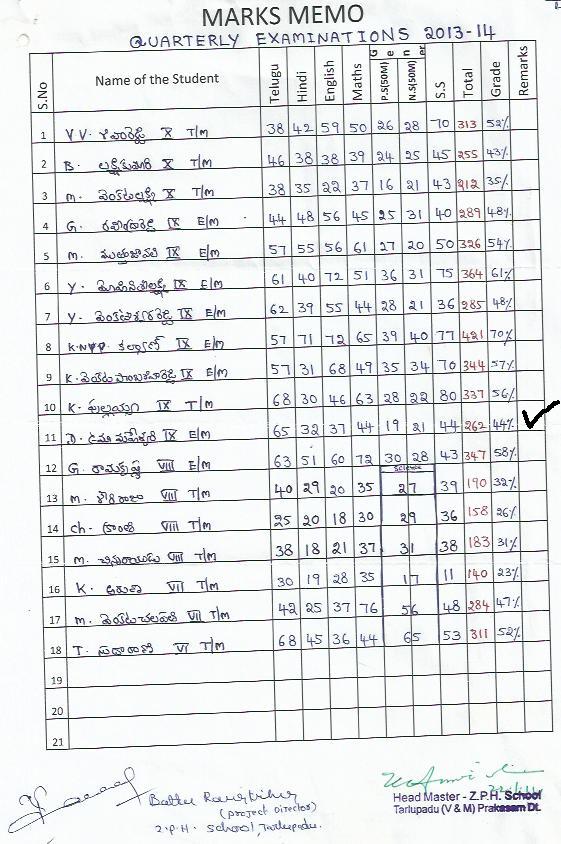 MARKS MEMO
QUARTERLY EXAMINATIONS 2013-14
S.No Name of the Student Telugu Hindi English Maths General P.S(50M) N.S(50M) S.S Total Grade Remarks
1 Y.V. X T/M 38 42 59 50 26 28 70 313 52%
2 B. X T/M 46 38 38 39 24 25 45 255 43%
3 M. వెంకటలక్ష్మి X T/M 38 35 22 37 16 21 43 212 35%
4 G. IX E/M 44 48 56 45 25 31 40 289 48%
5 M. IX E/M 57 55 56 61 27 20 50 326 54%
6 Y. IX E/M 61 40 72 51 36 31 75 364 61%
7 Y. IX E/M 62 39 55 44 28 21 36 285 48%
8 K.N.V.P. కల్యాణ్ IX E/M 57 71 72 65 39 40 77 421 70%
9 K. IX E/M 57 31 68 49 35 34 70 344 57%
10 K. IX T/M 68 30 46 63 28 22 80 337 56%
11 D. ఉమా మహేశ్వరి IX E/M 65 32 37 44 19 21 44 262 44%
12 G. రామకృష్ణ VIII E/M 63 51 60 72 30 28 43 347 58%
Science
13 M. VIII T/M 40 29 20 35 27 39 190 32%
14 Ch. VIII T/M 25 20 18 30 29 36 158 26%
15 M. VIII T/M 38 18 21 37 31 38 183 31%
16 K. VII T/M 30 19 28 35 17 11 140 23%
17 M. వెంకటచలపతి VII T/M 42 25 37 76 56 48 284 47%
18 T. VI T/M 68 45 36 44 65 53 311 52%
19
20
21
(Project Director)
Z.P.H. School, Tarlupadu.
Head Master - Z.P.H. School
Tarlupadu (V & M) Prakasam Dt.